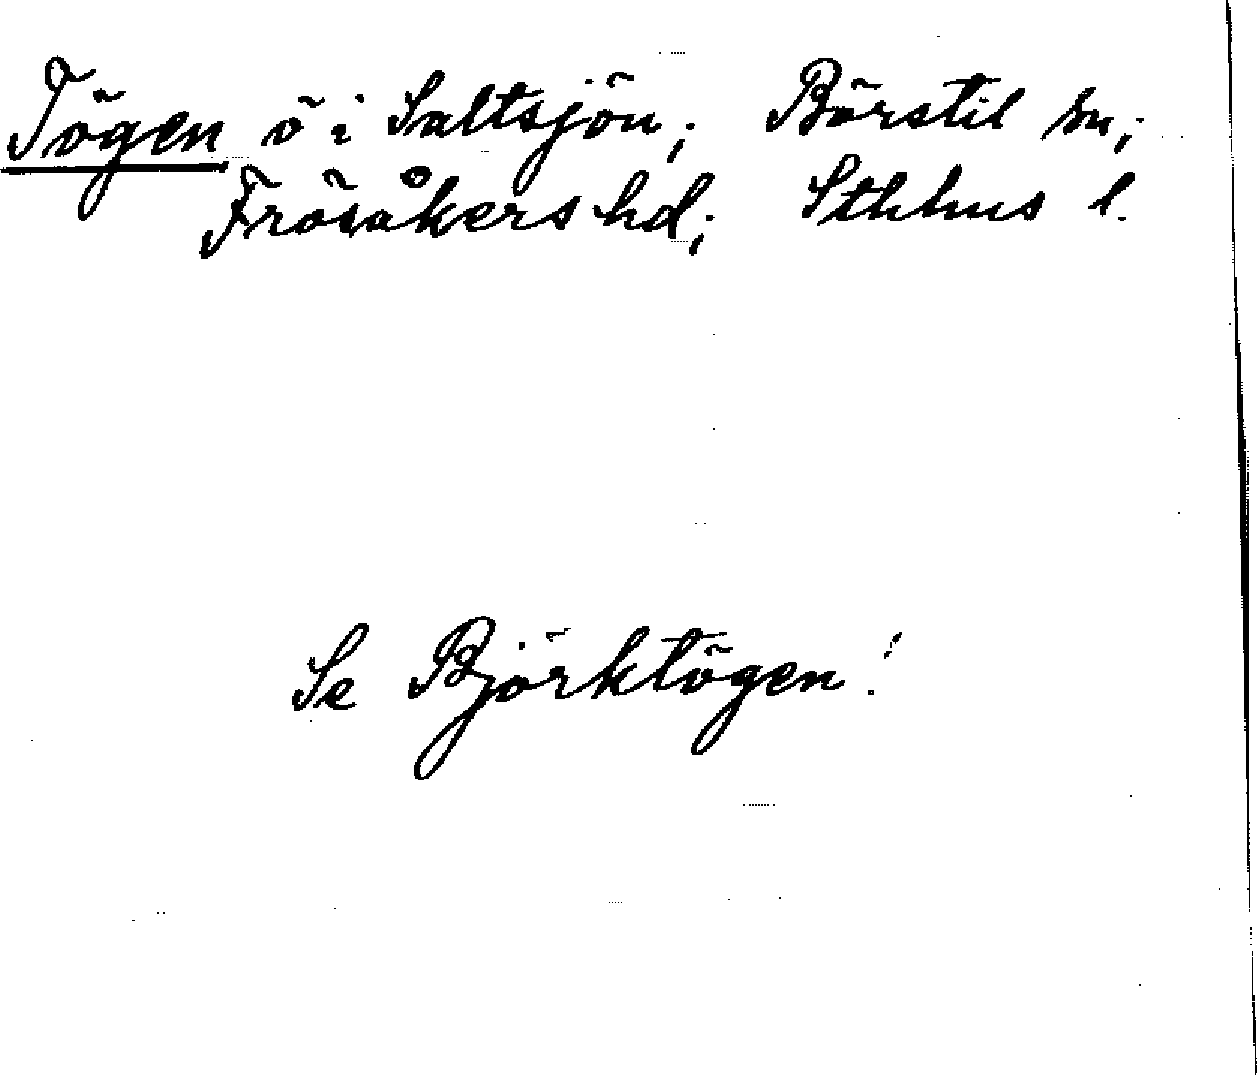 Tögen ö i Saltsjön; Börstil sn;
Frösåkers hd; Sthhus l.
Se Björktögen!